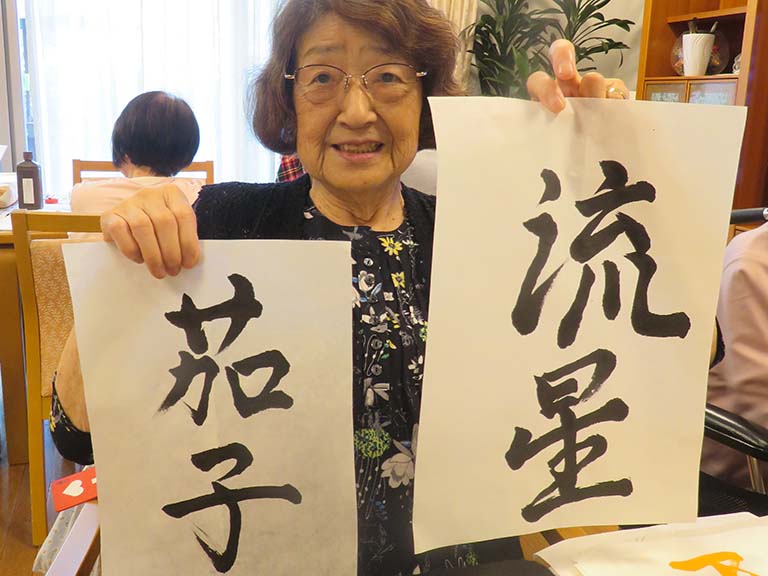 流星
茄子